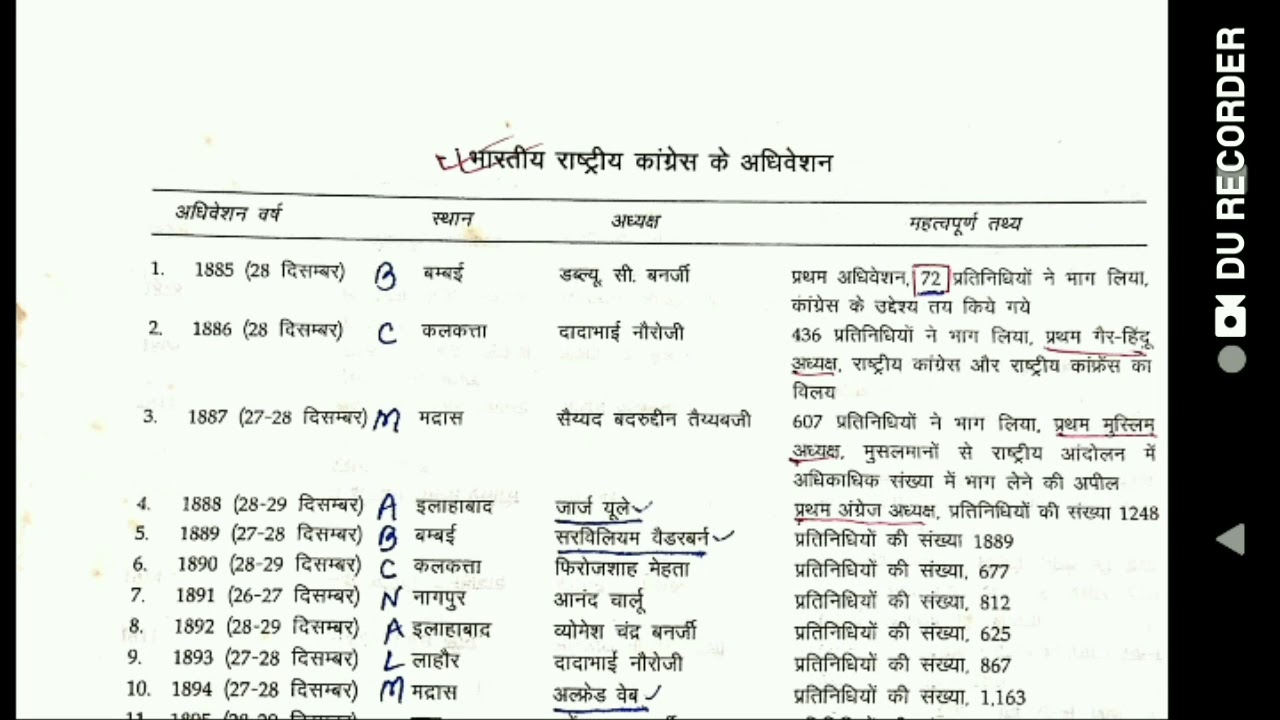 भारतीय राष्ट्रीय कांग्रेस के अधिवेशन
अधिवेशन वर्ष स्थान अध्यक्ष महत्वपूर्ण तथ्य
1. 1885 (28 दिसम्बर) B बम्बई डब्ल्यू. सी. बनर्जी प्रथम अधिवेशन, 72 प्रतिनिधियों ने भाग लिया,
कांग्रेस के उद्देश्य तय किये गये
2. 1886 (28 दिसम्बर) C कलकत्ता दादाभाई नौरोजी 436 प्रतिनिधियों ने भाग लिया, प्रथम गैर-हिंदू
अध्यक्ष, राष्ट्रीय कांग्रेस और राष्ट्रीय कांफ्रेंस का
विलय
3. 1887 (27-28 दिसम्बर) M मद्रास सैय्यद बदरुद्दीन तैय्यबजी 607 प्रतिनिधियों ने भाग लिया, प्रथम मुस्लिम
अध्यक्ष, मुसलमानों से राष्ट्रीय आंदोलन में
अधिकाधिक संख्या में भाग लेने की अपील
4. 1888 (28-29 दिसम्बर) A इलाहाबाद जार्ज यूले प्रथम अंग्रेज अध्यक्ष, प्रतिनिधियों की संख्या 1248
5. 1889 (27-28 दिसम्बर) B बम्बई सरविलियम वैडरबर्न प्रतिनिधियों की संख्या 1889
6. 1890 (28-29 दिसम्बर) C कलकत्ता फिरोजशाह मेहता प्रतिनिधियों की संख्या, 677
7. 1891 (26-27 दिसम्बर) N नागपुर आनंद चार्लू प्रतिनिधियों की संख्या, 812
8. 1892 (28-29 दिसम्बर) A इलाहाबाद व्योमेश चंद्र बनर्जी प्रतिनिधियों की संख्या, 625
9. 1893 (27-28 दिसम्बर) L लाहौर दादाभाई नौरोजी प्रतिनिधियों की संख्या, 867
10. 1894 (27-28 दिसम्बर) M मद्रास अल्फ्रेड वेब प्रतिनिधियों की संख्या, 1,163
DU RECORDER